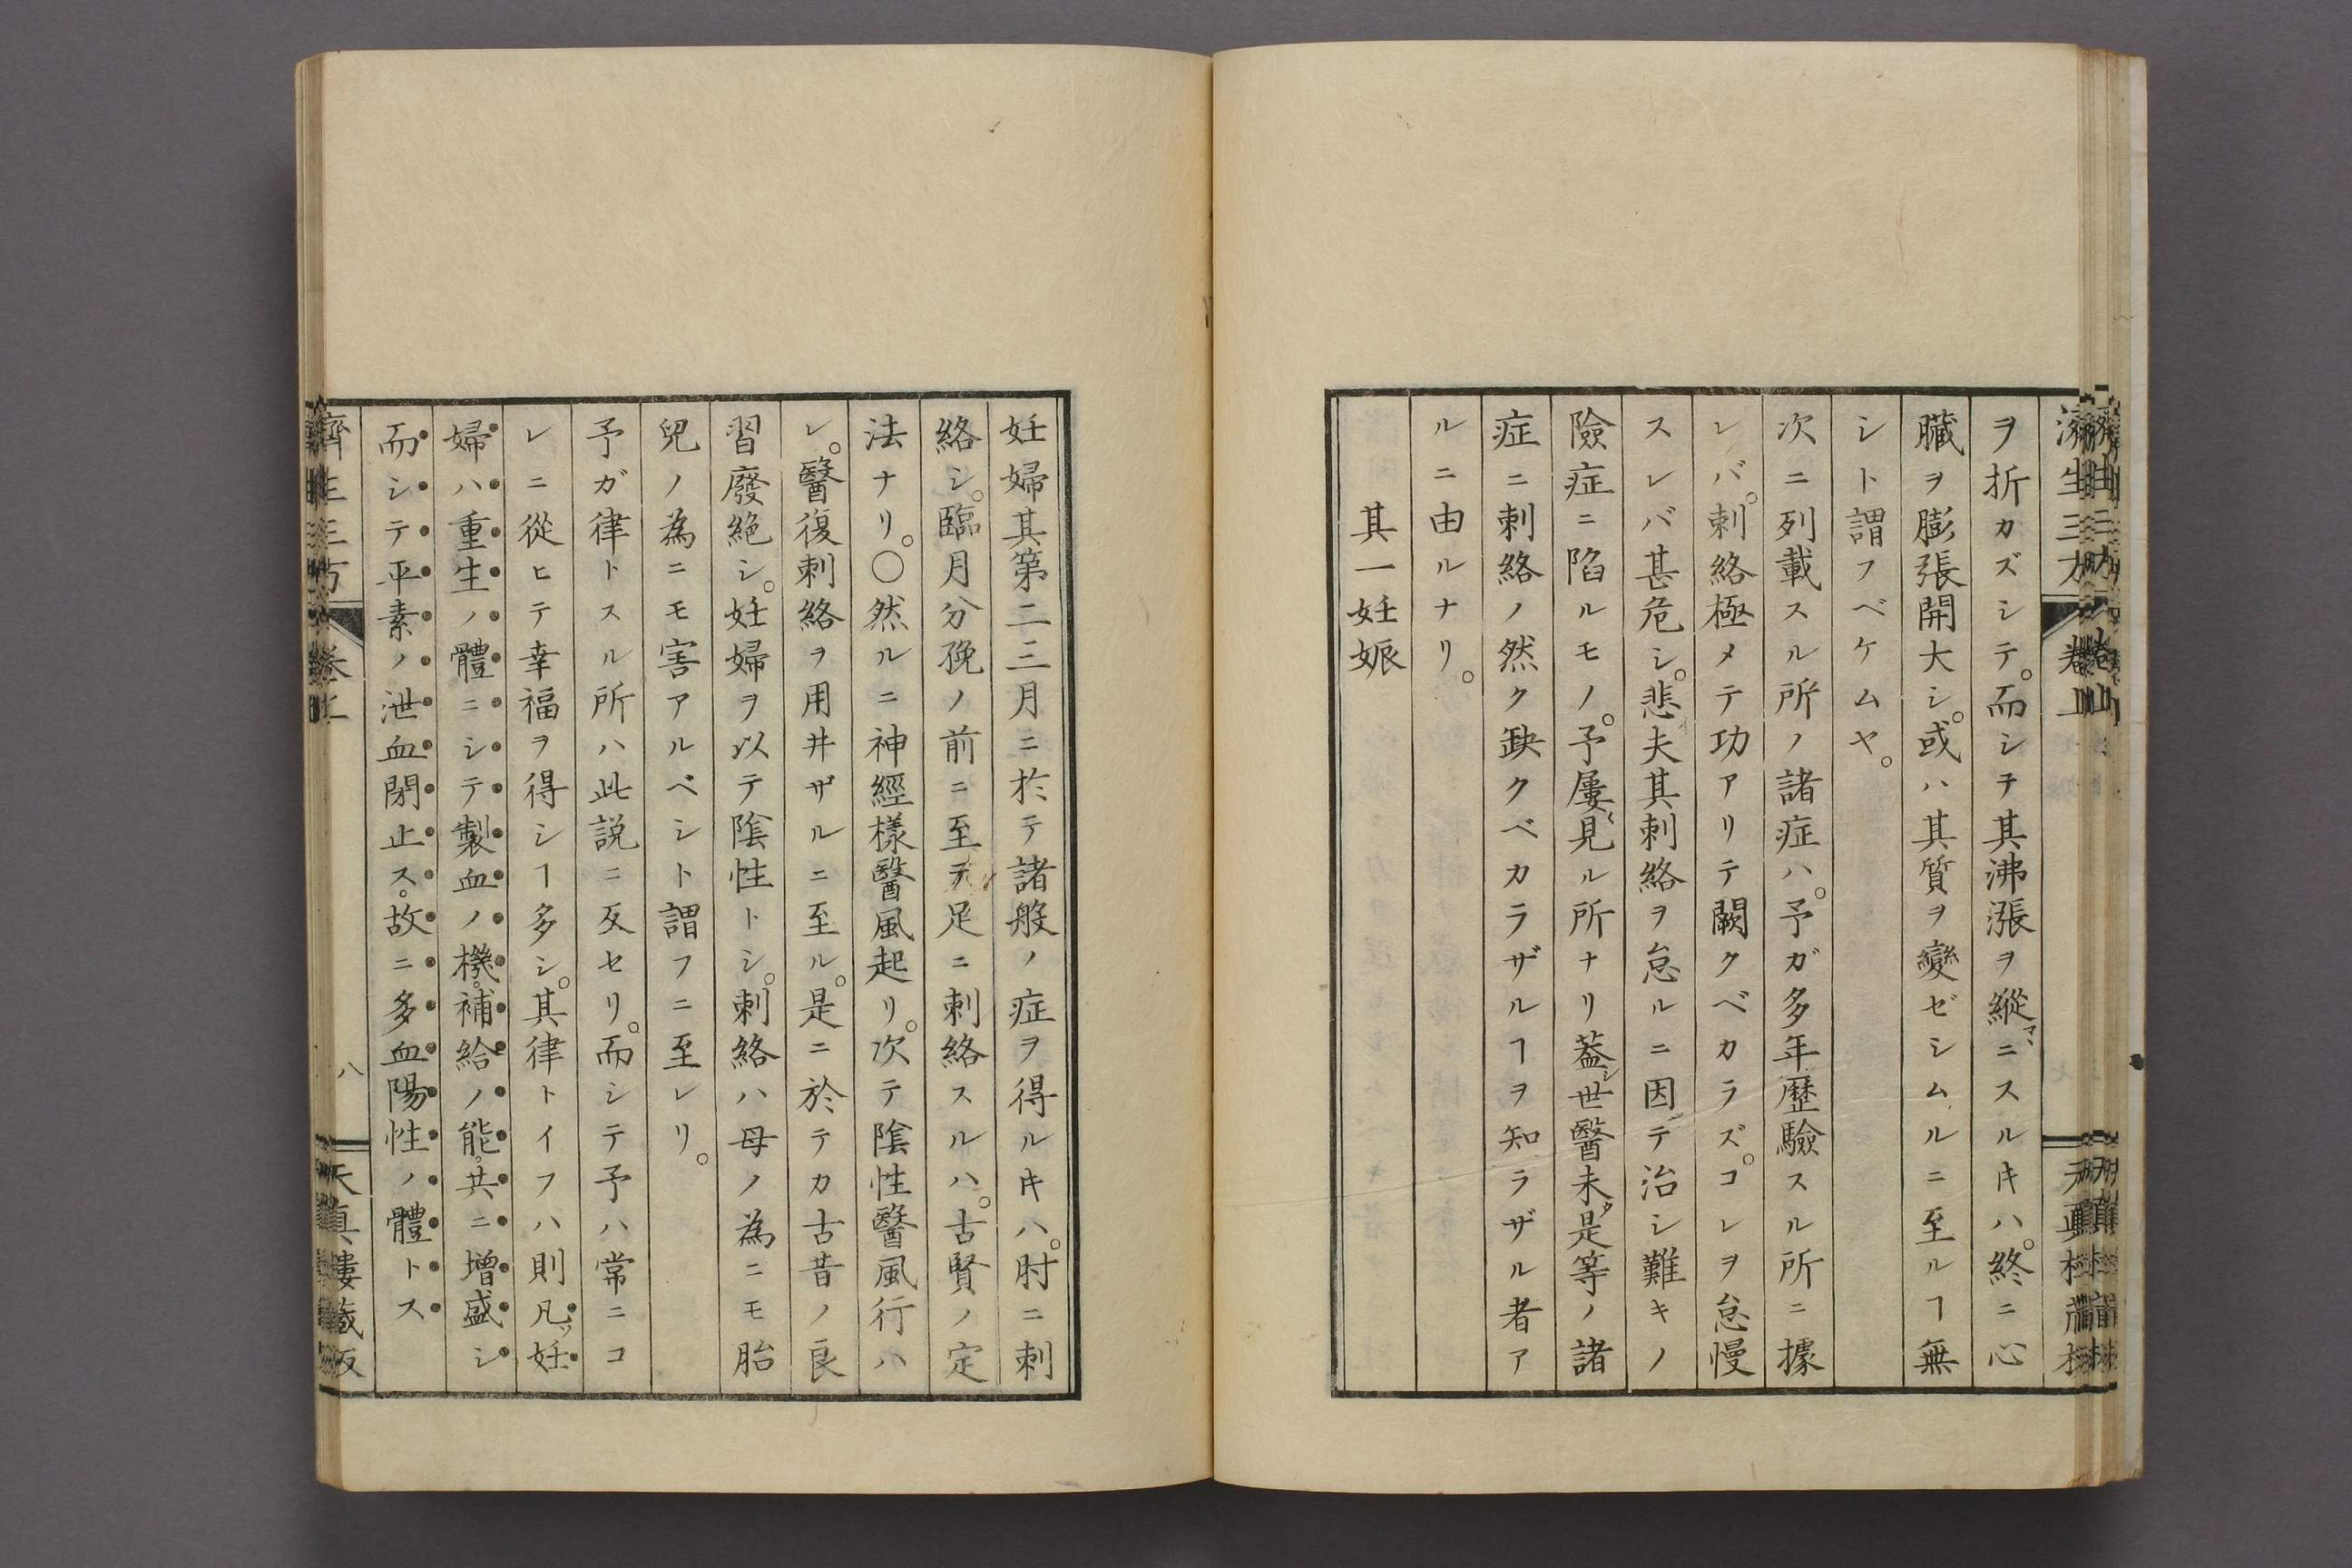 ヲ折カズシテ。而シテ其沸漲ヲ縱マヽニスルキハ。終ニ心
臟ヲ膨張開大シ。或ハ其質ヲ變ゼシムルニ至ルヿ無
シト謂フベケムヤ。
次ニ列載スル所ノ諸症ハ。予ガ多年歷驗スル所ニ據
レバ。刺絡極メテ功アリテ闕クベカラズ。コレヲ怠慢
スレバ甚危シ。悲夫其刺絡ヲ怠ルニ因テ治シ難キノ
險症ニ陷ルモノ。予屢〻見ル所ナリ蓋シ世醫未タ是等ノ諸
症ニ刺絡ノ然ク缺クベカラザルヿヲ知ラザル者ア
ルニ由ルナリ。
其一妊娠
妊婦其第二三月ニ於テ諸般ノ症ヲ得ルキハ。肘ニ刺
絡シ。臨月分娩ノ前ニ至テ足ニ刺絡スルハ。古賢ノ定
法ナリ。〇然ルニ神經樣醫風起リ。次テ陰性醫風行ハ
レ。醫復刺絡ヲ用井ザルニ至ル。是ニ於テカ古昔ノ良
習廢絕シ。妊婦ヲ以テ陰性トシ。刺絡ハ母ノ為ニモ胎
兒ノ為ニモ害アルベシト謂フニ至レリ。
予ガ律トスル所ハ此說ニ反セリ。而シテ予ハ常ニコ
レニ從ヒテ幸福ヲ得シヿ多シ。其律トイフハ則凡ソ妊
婦ハ重生ノ體ニシテ製血ノ機。補給ノ能。共ニ增盛シ
而シテ平素ノ泄血閉止ス。故ニ多血陽性ノ體トス
濟生三方 卷上 八 天真樓藏版